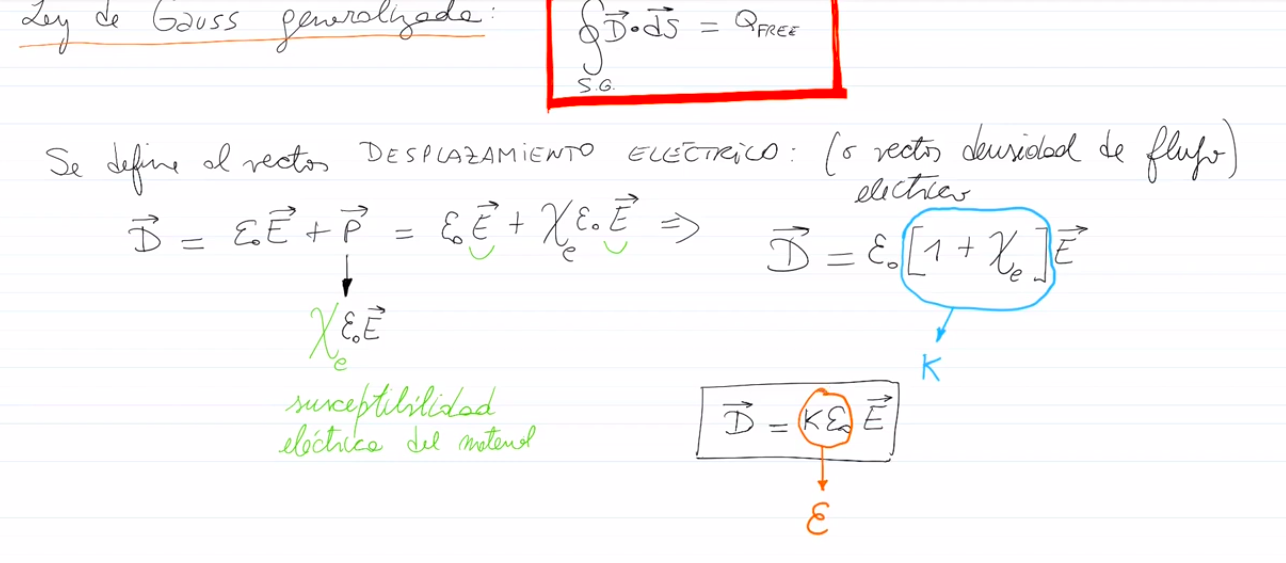 Ley de Gauss generalizada:
∮ D⃗ • dS⃗ = Q_FREE
S.G.
Se define el vector DESPLAZAMIENTO ELÉCTRICO: (o vector densidad de flujo)
electrico
D⃗ = ε₀E⃗ + P⃗ = ε₀E⃗ + χₑε₀E⃗ ⇒ D⃗ = ε₀[1 + χₑ]E⃗
χₑε₀E⃗
K
susceptibilidad
eléctrica del material
D⃗ = Kε₀E⃗
ε